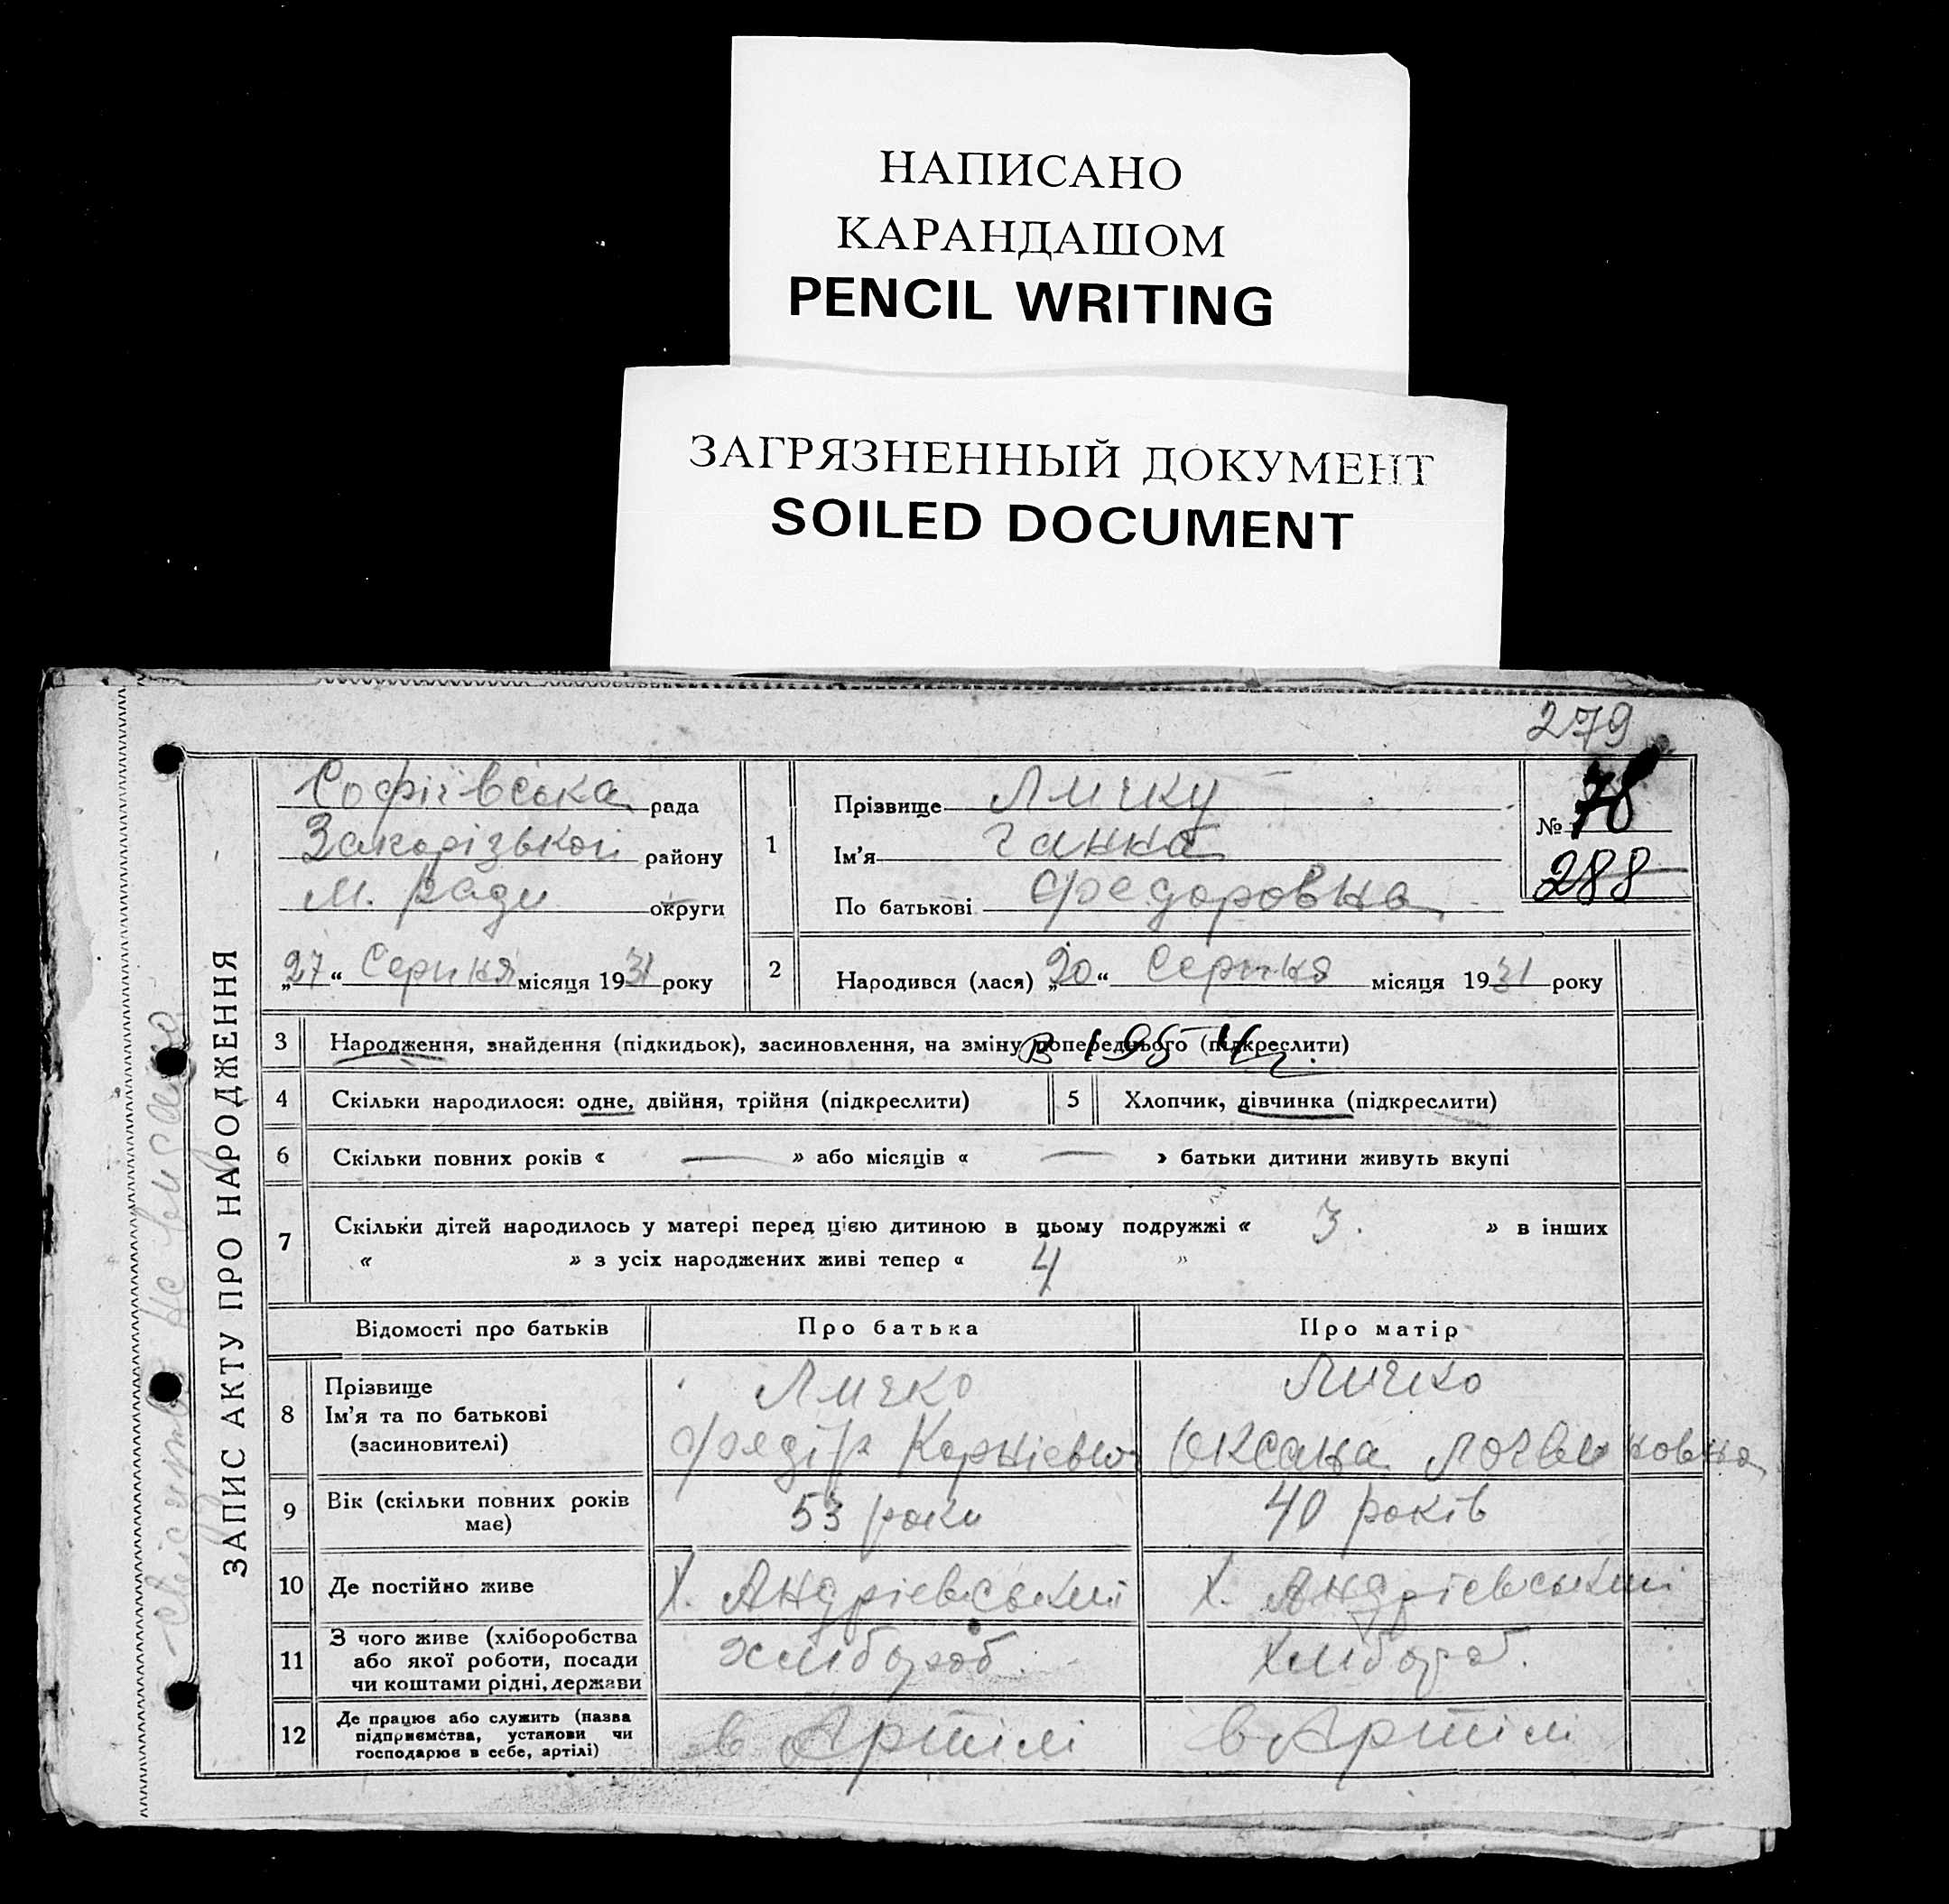 НАПИСАНО
КАРАНДАШОМ
PENCIL WRITING
ЗАГРЯЗНЕННЫЙ ДОКУМЕНТ
SOILED DOCUMENT
279
ЗАПИС АКТУ ПРО НАРОДЖЕННЯ
Софіївська рада
Запорізької району
м. Ради округи
„27“ Серпня місяця 1931 року
1
Прізвище Личку
Ім'я Ганна
По батькові Федоровна
№ 78
288
2 Народився (лася) „20“ Серпня місяця 1931 року
3 Народження, знайдення (підкидьок), засиновлення, на зміну попереднього (підкреслити)
4 Скільки народилося: одне, двійня, трійня (підкреслити) 5 Хлопчик, дівчинка (підкреслити)
6 Скільки повних років « — » або місяців « — » батьки дитини живуть вкупі
7 Скільки дітей народилось у матері перед цією дитиною в цьому подружжі « 3. » в інших
« » з усіх народжених живі тепер « 4 »
Відомості про батьків Про батька Про матір
8 Прізвище Личко Личко
Ім'я та по батькові
(засиновителі) Федір Корнієвич Оксана Логвиновна
9 Вік (скільки повних років має) 53 роки 40 років
10 Де постійно живе Х. Андрієвський Х. Андрієвський
11 З чого живе (хліборобства
або якої роботи, посади
чи коштами рідні, держави хлібороб. хлібороб.
12 Де працює або служить (назва
підприємства, установи чи
господарює в себе, артілі) в Артілі в Артілі